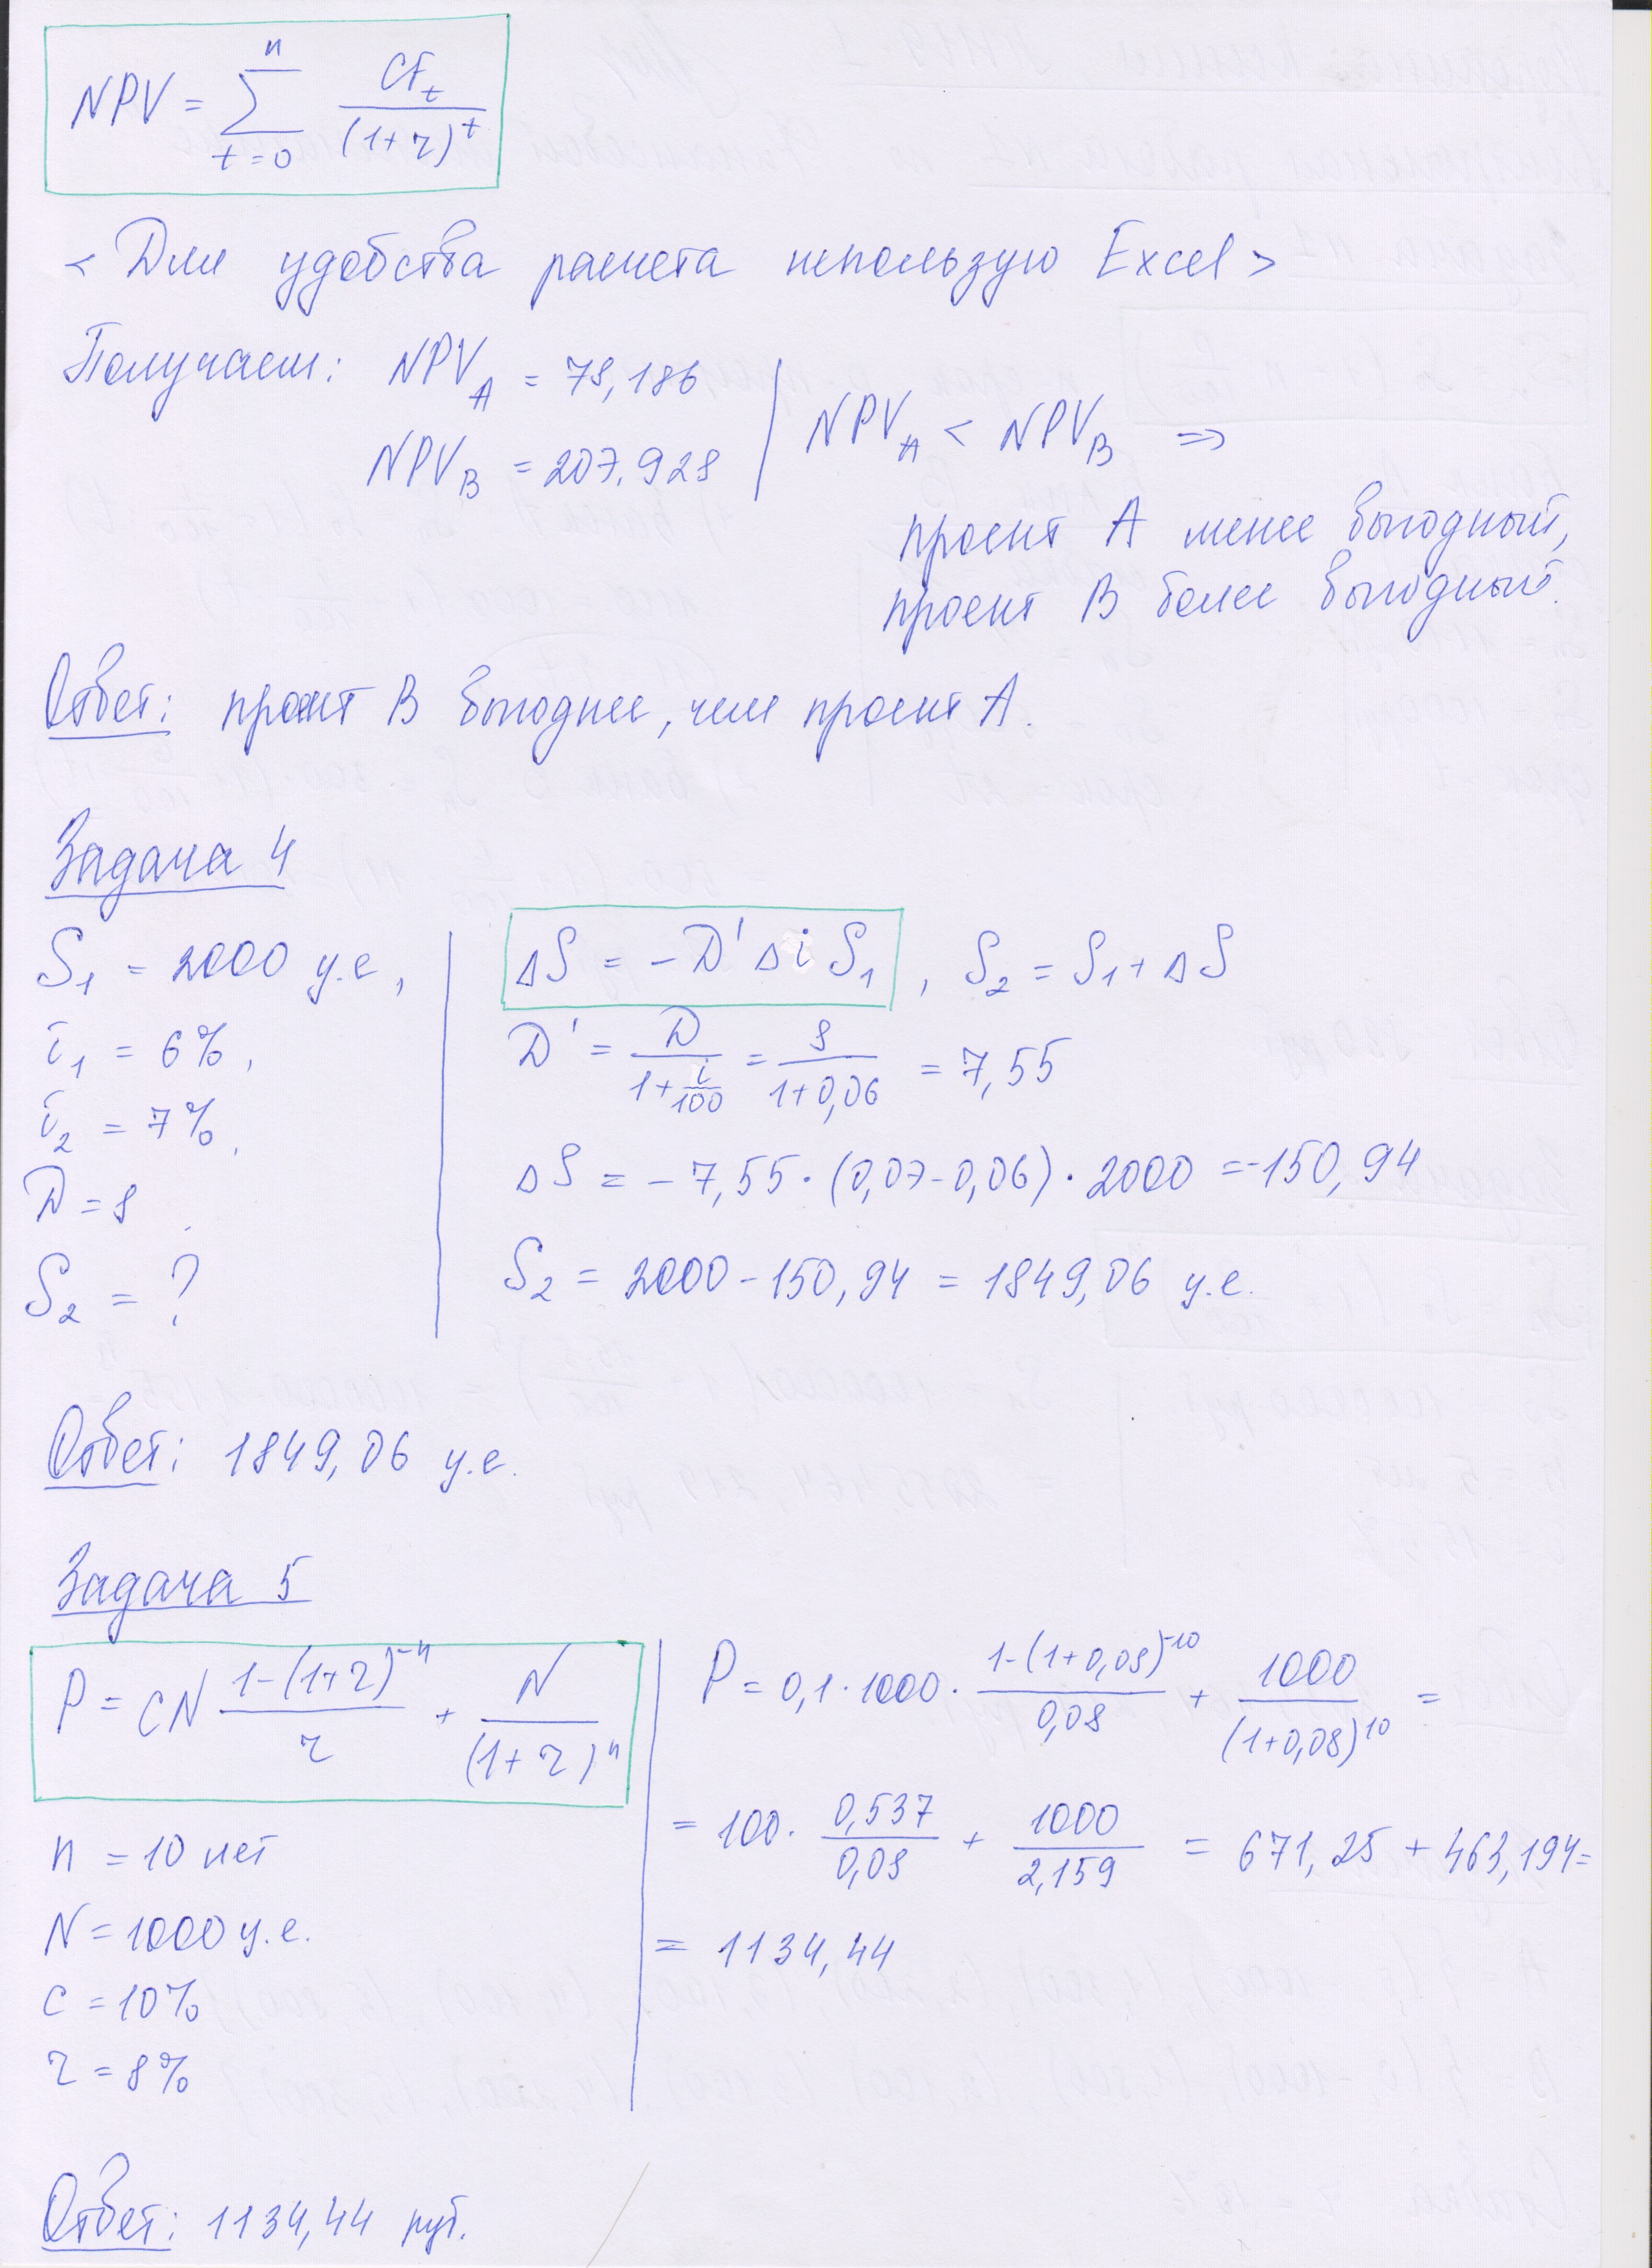 NPV = ∑_{t=0}^{n} CF_t / (1+r)^t
<Для удобства расчета использую Excel>
Получаем: NPV_A = 78,186
NPV_B = 207.928
NPV_A < NPV_B ⇒
проект А менее выгодный,
проект В более выгодный.
Ответ: проект В выгоднее, чем проект А.
Задача 4
S_1 = 2000 у.е,
i_1 = 6%,
i_2 = 7%,
D = 8
S_2 = ?
ΔS = -D' Δi S_1, S_2 = S_1 + ΔS
D' = D / (1 + i/100) = 8 / (1+0,06) = 7,55
ΔS = -7,55 · (0,07-0,06) · 2000 = -150,94
S_2 = 2000 - 150,94 = 1849,06 у.е.
Ответ: 1849,06 у.е.
Задача 5
P = CN (1-(1+r)^{-n}) / r + N / (1+r)^n
n = 10 лет
N = 1000 у.е.
c = 10%
r = 8%
P = 0,1·1000· (1-(1+0,08)^{-10}) / 0,08 + 1000 / (1+0,08)^{10} =
= 100· 0,537 / 0,08 + 1000 / 2,159 = 671,25 + 463,194 =
= 1134,44
Ответ: 1134,44 руб.